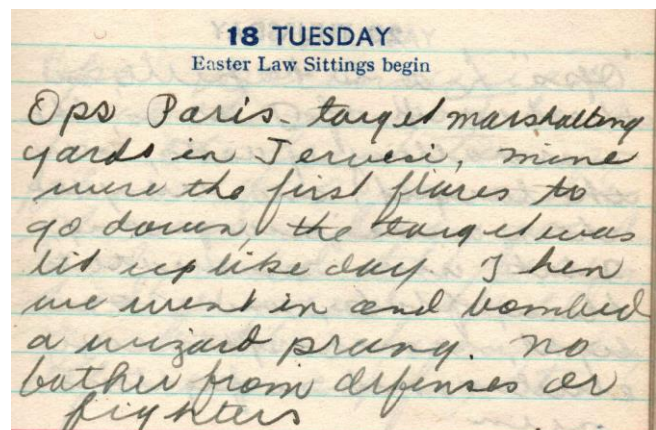 18 TUESDAY
Easter Law Sittings begin
Ops Paris - target marshalling
yards in Jervesi, mine
were the first flares to
go down, the target was
lit up like day Then
we went in and bombed
a wizard prang. no
bother from defenses or
fighters